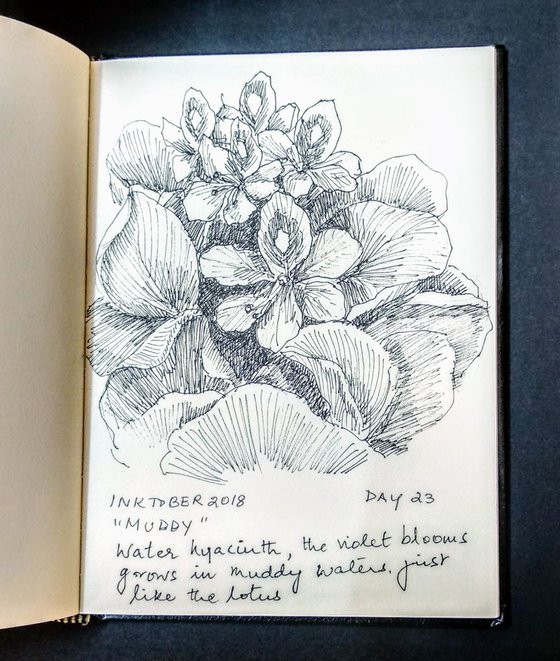 INKTOBER 2018 DAY 23
"MUDDY"
Water hyacinth, the violet blooms
grows in muddy waters. just
like the lotus